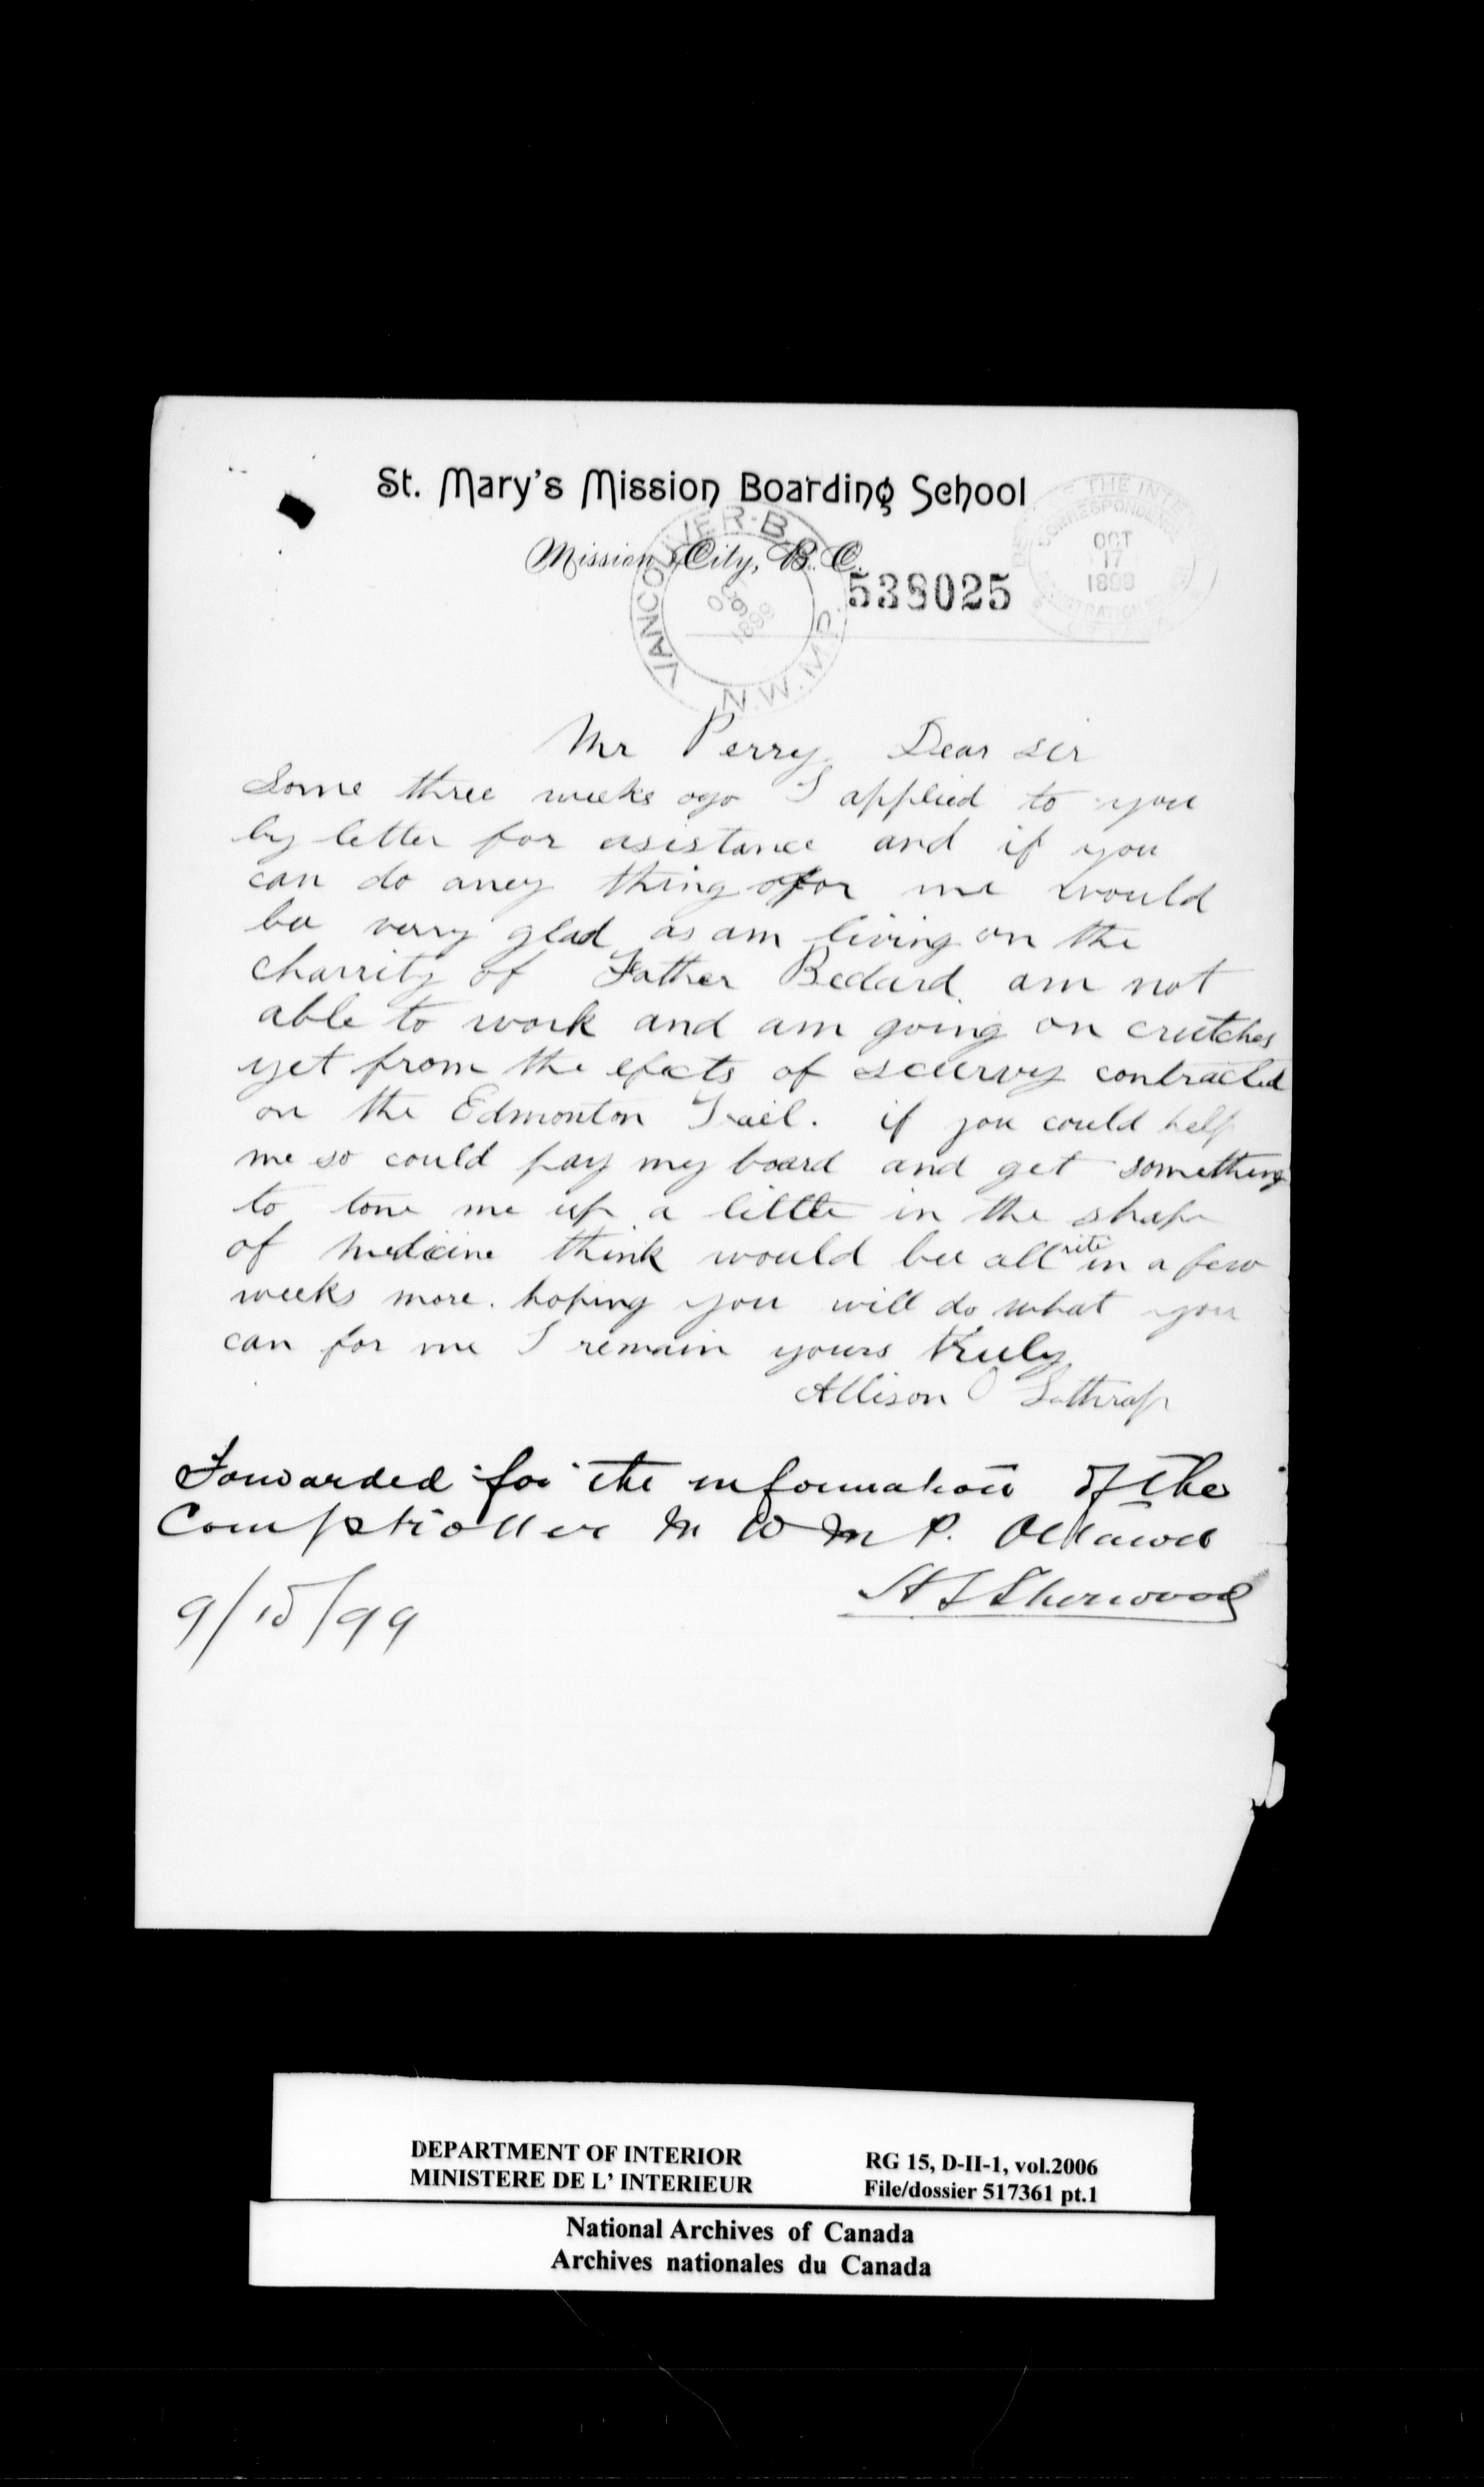 St. Mary's Mission Boarding School
Mission City, B.C.
VANCOUVER. B.
OCT 9 1899
N.W.M.P.
538025
THE INTE
CORRESPONDENCE
OCT
17
1899
REGISTRATION
Mr Perry. Dear sir
Some three weeks ago I applied to you
by letter for asistance and if you
can do aney thing for me would
be very glad as am living on the
charrity of Father Bedard. am not
able to work and am going on crutches
yet from the efects of scurvy contracted
on the Edmonton Trail. if you could help
me so could pay my board and get something
to tone me up a little in the shape
of medicine think would bee all rite in a few
weeks more. hoping you will do what you
can for me I remain yours truly
Allison O Lothrop
Forwarded for the information of the
Comptroller N W M P. Ottawa
9/10/99
Sherwood
DEPARTMENT OF INTERIOR
MINISTERE DE L' INTERIEUR
RG 15, D-II-1, vol.2006
File/dossier 517361 pt.1
National Archives of Canada
Archives nationales du Canada